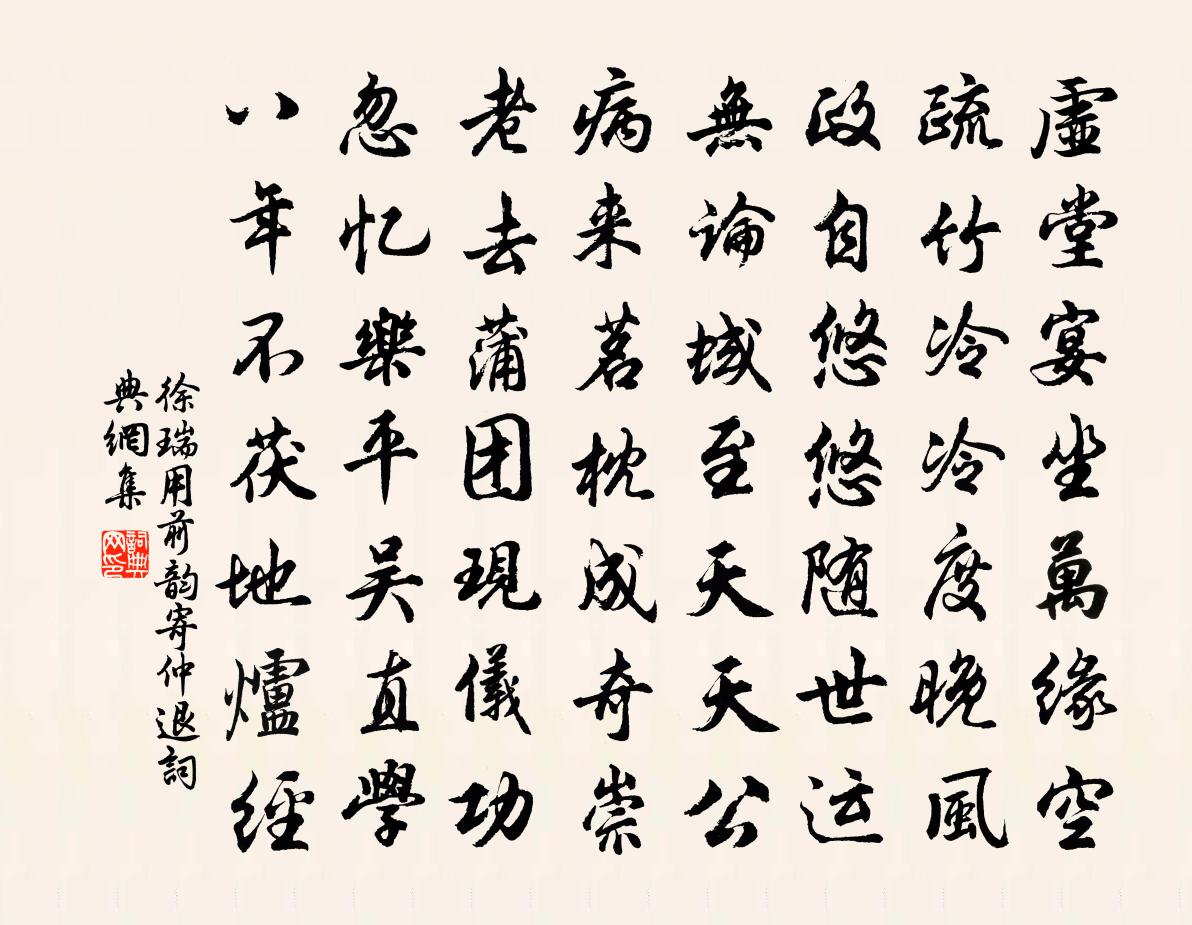 虛堂宴坐萬緣空
疏竹冷冷度晚風
政自悠悠随世运
無論域至天天公
病来茗枕成奇崇
老去蒲团現儀功
忽忆樂平吴直學
八年不茯地爐經
徐瑞用前韵寄仲退詞
典網集
詞典网印